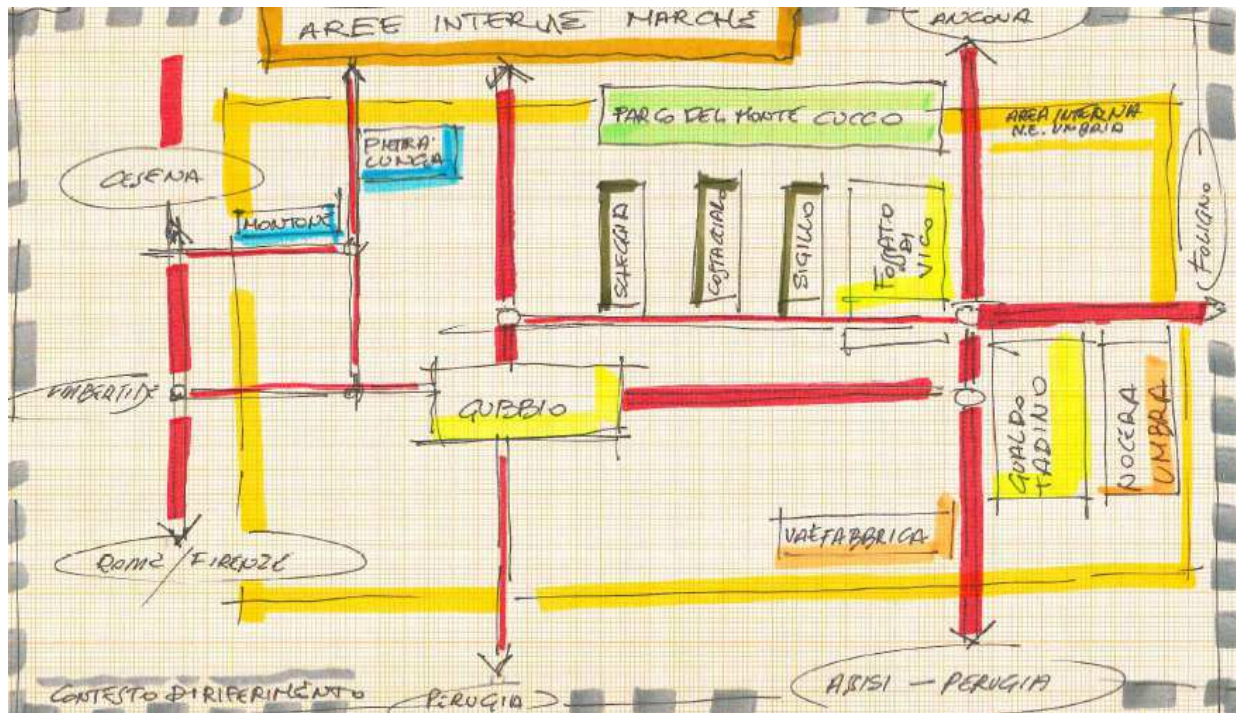 AREE INTERNE MARCHE
ANCONA
PARCO DEL MONTE CUCCO
AREA INTERNA
N.E. UMBRIA
PIETRA-
LUNGA
CESENA
MONTONE
SCHEGGIA
COSTACCIARO
SIGILLO
FOSSATO
DI
VICO
FOLIGNO
UMBERTIDE
GUBBIO
GUALDO
TADINO
NOCERA
UMBRA
VALFABBRICA
ROMA/FIRENZE
CONTESTO DI RIFERIMENTO
PERUGIA
ASISI - PERUGIA